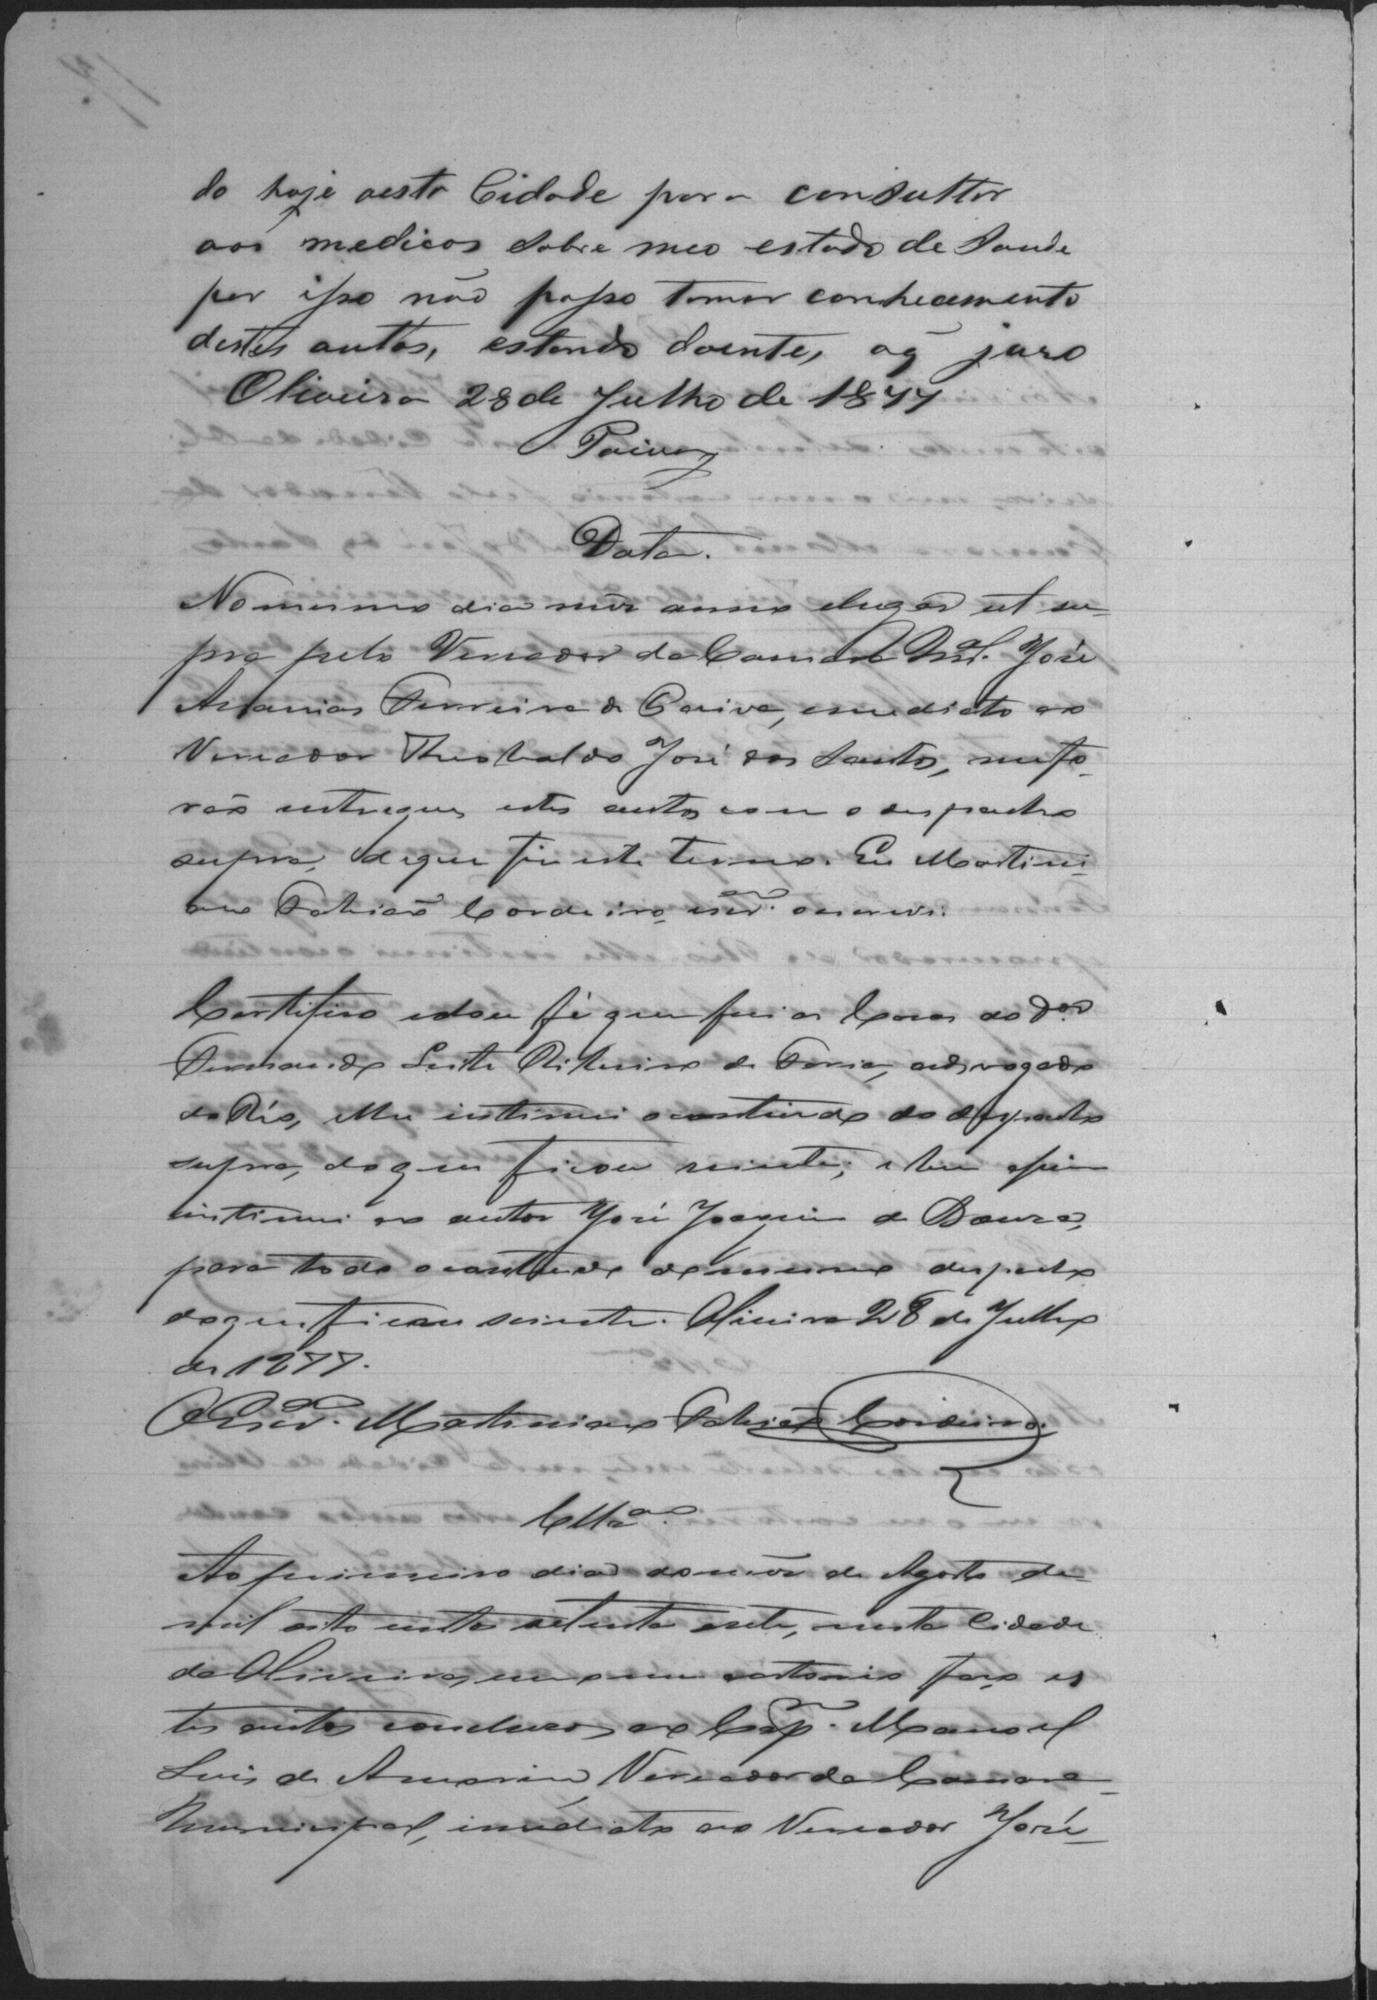 do hoje aesta Cidade para consultar
aos medicos sobre meo estado de Saude
por isso não posso tomar conhecimento
destes autos, estando doente, oq̃ juro
Oliveira 28 de Julho de 1877
Paiva
Data.
No mesmo dia mez anno elugar ut su-
pra pelo Vereador da Camara Mal. José
Ananias Ferreira de Paiva, immediato ao
Vereador Theobaldo José dos Santos, mefo-
rão entregues estes autos com o despacho
supra, de que fiz este termo. Eu Martini-
ano Fabião Cordeiro escrm. o escrevi.
Certifico edou fé que fui a Casa do Dor.
Fernando Leite Ribeiro de Faria, advogado
do Réo, elhe intimei o contiudo do despacho
supra, do que ficou sciente; e bem assim
intimei ao autor José Joaquim de Souza,
para todo o contiudo do mesmo despacho
do que ficou sciente. Oliveira 28 de Julho
de 1877.
O Escm. Martiniano Fabião Cordeiro.
Cllam.
Ao primeiro dia do mez de Agosto de
mil oito centos setenta esete, nesta Cidade
da Oliveira, em o meu cartorio faço es
tes autos conclusos ao Capm. Manoel
Luis de Amorim, Vereador da Camara
Municipal, immediato ao Vereador José